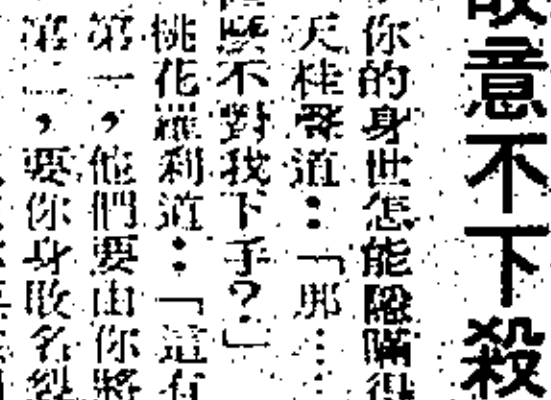 故意不下殺
你的身世怎能隱瞞得
天桂哥道：「那……
麼不對我下手？」
桃花羅刹道：「這有
第一，他們要由你將
第二，要你身敗名裂